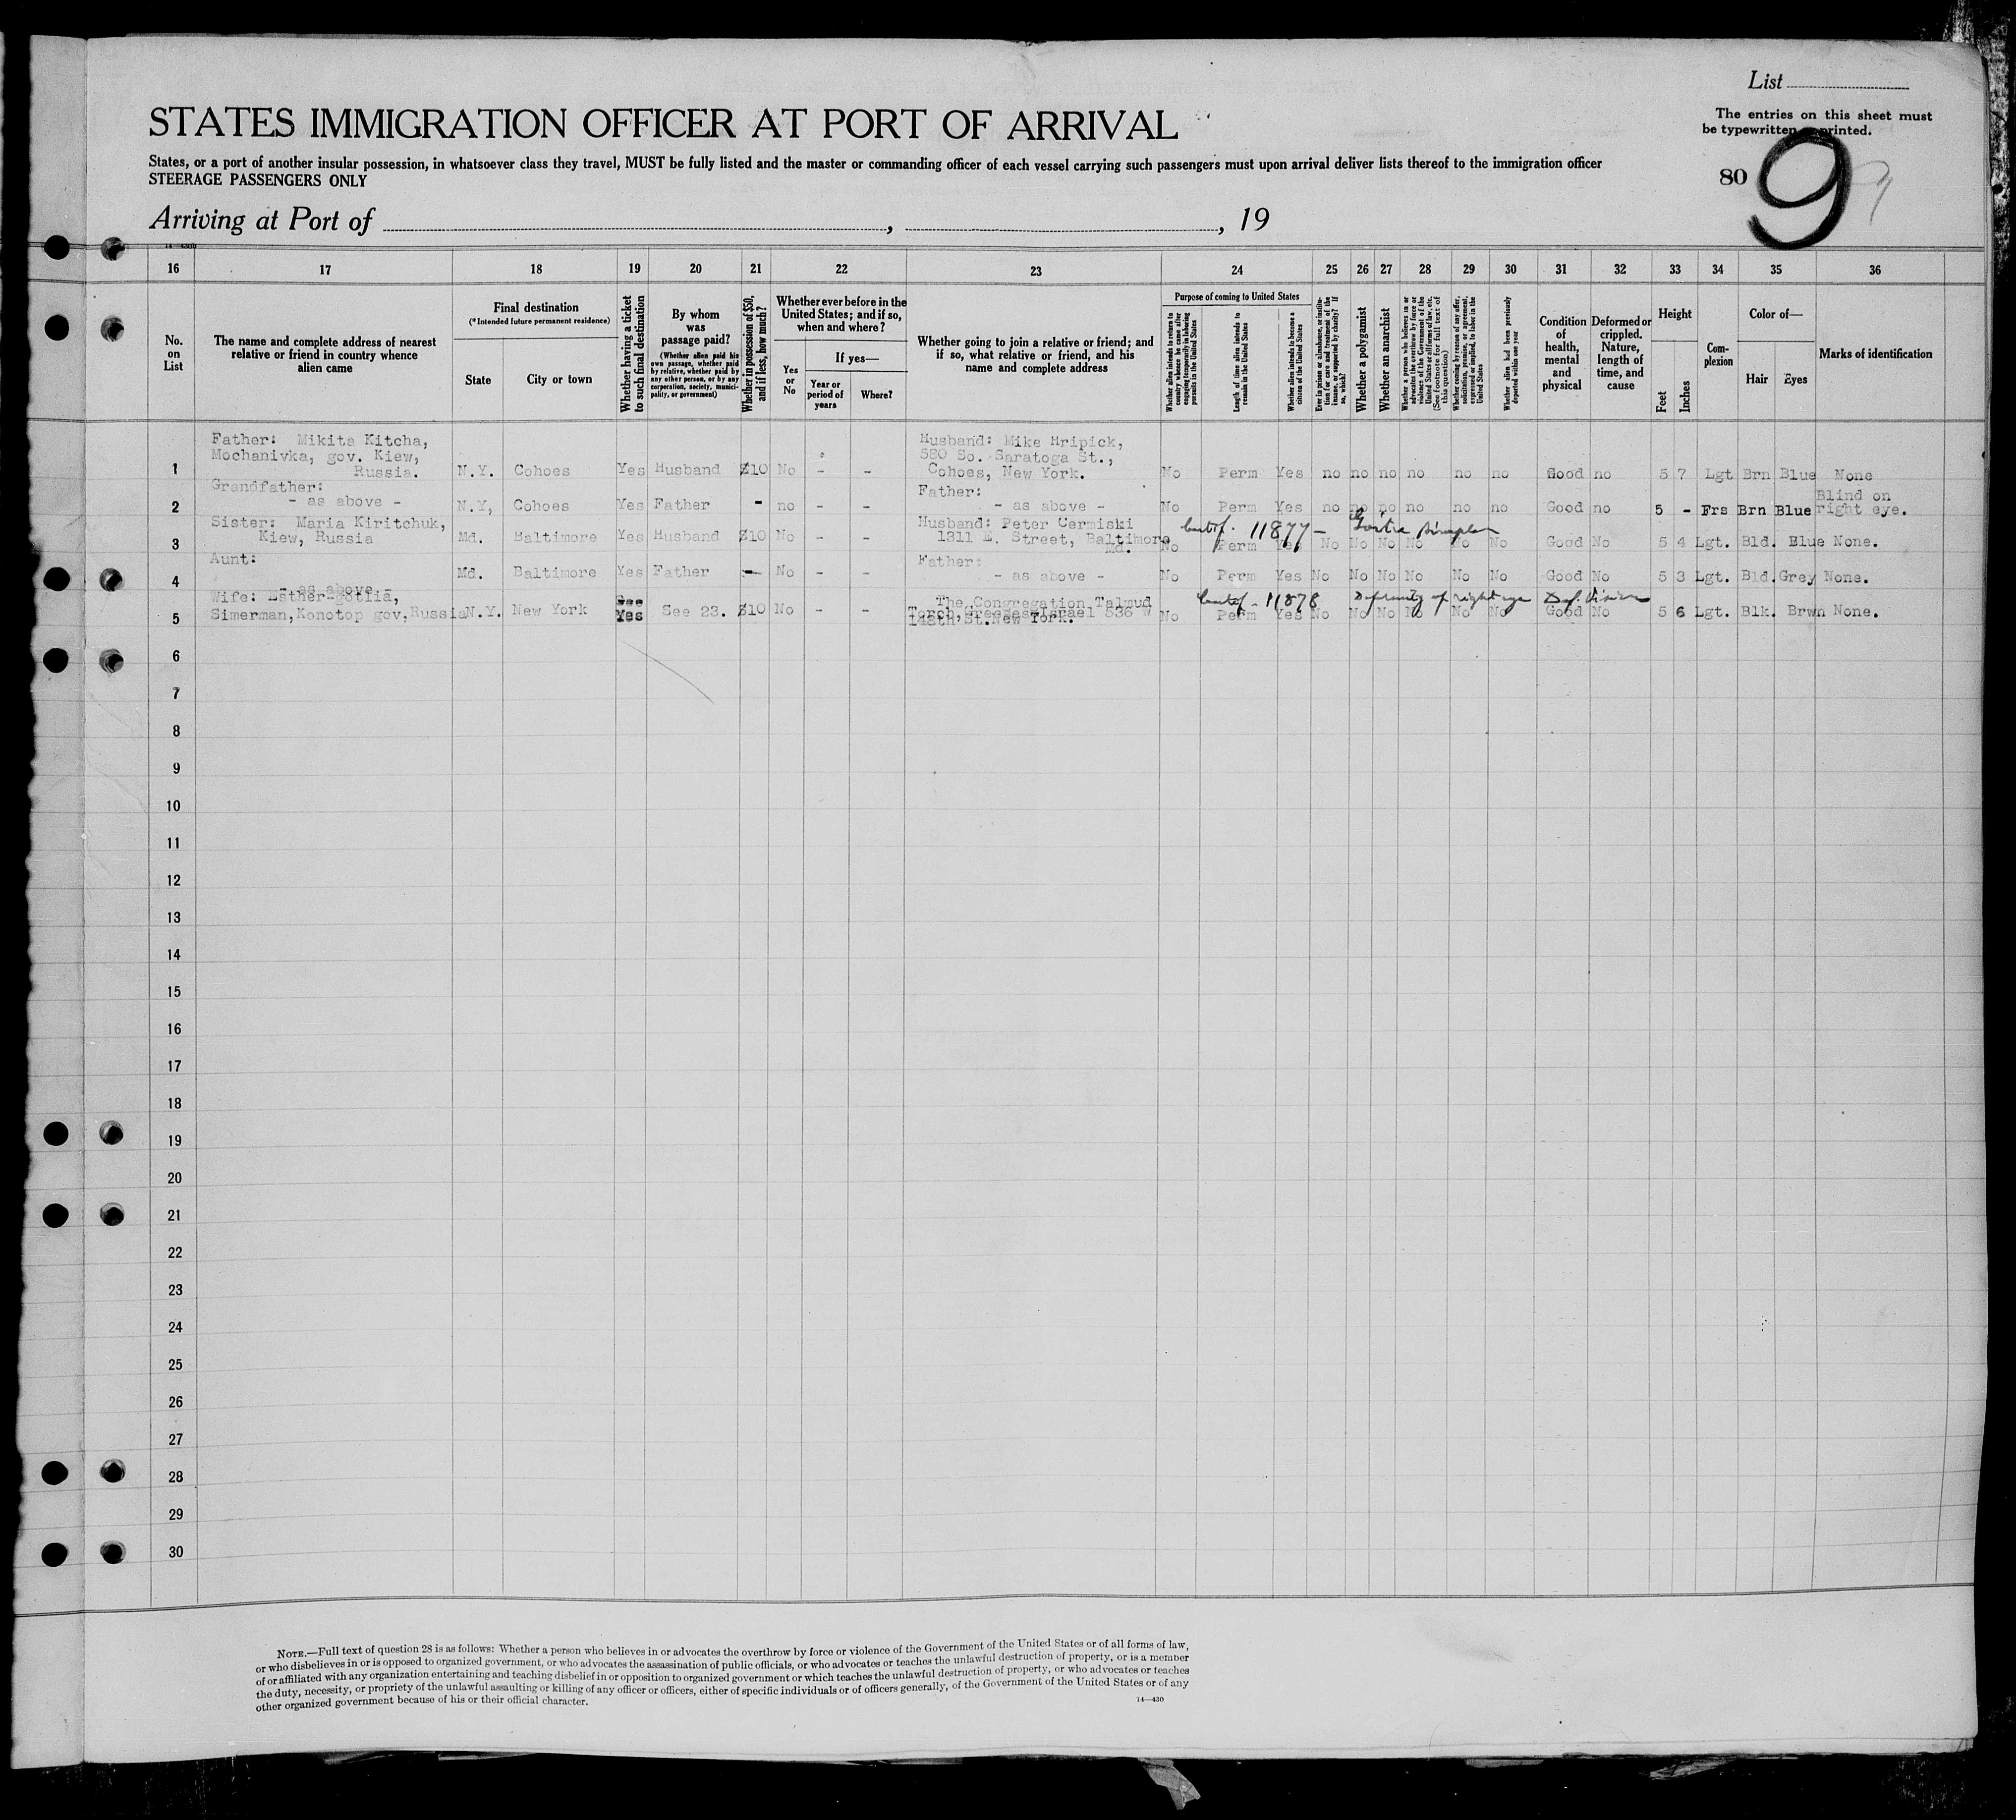 List
STATES IMMIGRATION OFFICER AT PORT OF ARRIVAL
The entries on this sheet must
be typewritten or printed.
States, or a port of another insular possession, in whatsoever class they travel, MUST be fully listed and the master or commanding officer of each vessel carrying such passengers must upon arrival deliver lists thereof to the immigration officer
STEERAGE PASSENGERS ONLY
80 9
Arriving at Port of , , 19
16 17 18 19 20 21 22 23 24 25 26 27 28 29 30 31 32 33 34 35 36
No. on List
The name and complete address of nearest relative or friend in country whence alien came
Final destination
(*Intended future permanent residence)
State
City or town
Whether having a ticket to such final destination
By whom was passage paid?
(Whether alien paid his own passage, whether paid by relative, whether paid by any other person, or by any corporation, society, municipality, or government)
Whether in possession of $50, and if less, how much?
Whether ever before in the United States; and if so, when and where?
Yes or No
If yes—
Year or period of years
Where?
Whether going to join a relative or friend; and if so, what relative or friend, and his name and complete address
Purpose of coming to United States
Whether alien intends to return to country whence he came after engaging temporarily in laboring pursuits in the United States
Length of time alien intends to remain in the United States
Whether alien intends to become a citizen of the United States
Ever in prison or almshouse, or institution for care and treatment of the insane, or supported by charity? If so, which?
Whether a polygamist
Whether an anarchist
Whether a person who believes in or advocates the overthrow by force or violence of the Government of the United States or all forms of law, etc. (See footnote for full text of this question)
Whether coming by reason of any offer, solicitation, promise, or agreement, expressed or implied, to labor in the United States
Whether alien had been previously deported within one year
Condition of health, mental and physical
Deformed or crippled. Nature, length of time, and cause
Height
Feet
Inches
Complexion
Color of—
Hair
Eyes
Marks of identification
Father: Mikita Kitcha,
Mochanivka, gov. Kiew,
Russia.
Husband: Mike Hripick,
580 So. Saratoga St.,
Cohoes, New York.
1 N.Y. Cohoes Yes Husband $10 No - - No Perm Yes no no no no no no Good no 5 7 Lgt Brn Blue None
Grandfather:
- as above -
Father:
- as above -
2 N.Y, Cohoes Yes Father - no - - No Perm Yes no no no no no no Good no 5 - Frs Brn Blue Blind on
right eye.
Sister: Maria Kiritchuk,
Kiew, Russia
Husband: Peter Cermiski
1311 E. Street, Baltimore
Md.
11877 - Goitre simplex
3 Md. Baltimore Yes Husband $10 No - - No Perm Yes No No No No No No Good No 5 4 Lgt. Bld. Blue None.
Aunt:
- as above -
Father:
- as above -
4 Md. Baltimore Yes Father - No - - No Perm Yes No No No No No No Good No 5 3 Lgt. Bld. Grey None.
Wife: Esther-gotlia,
Simerman, Konotop gov, Russia
The Congregation Talmud
536 W
148th St. New York.
11878 Deformity of right eye Def. Vision
5 N.Y. New York See
Yes See 23. $10 No - - No Perm Yes No No No No No No Good No 5 6 Lgt. Blk. Brwn None.
6
7
8
9
10
11
12
13
14
15
16
17
18
19
20
21
22
23
24
25
26
27
28
29
30
NOTE.—Full text of question 28 is as follows: Whether a person who believes in or advocates the overthrow by force or violence of the Government of the United States or of all forms of law,
or who disbelieves in or is opposed to organized government, or who advocates the assassination of public officials, or who advocates or teaches the unlawful destruction of property, or is a member
of or affiliated with any organization entertaining and teaching disbelief in or opposition to organized government or which teaches the unlawful destruction of property, or who advocates or teaches
the duty, necessity, or propriety of the unlawful assaulting or killing of any officer or officers, either of specific individuals or of officers generally, of the Government of the United States or of any
other organized government because of his or their official character.
14—430